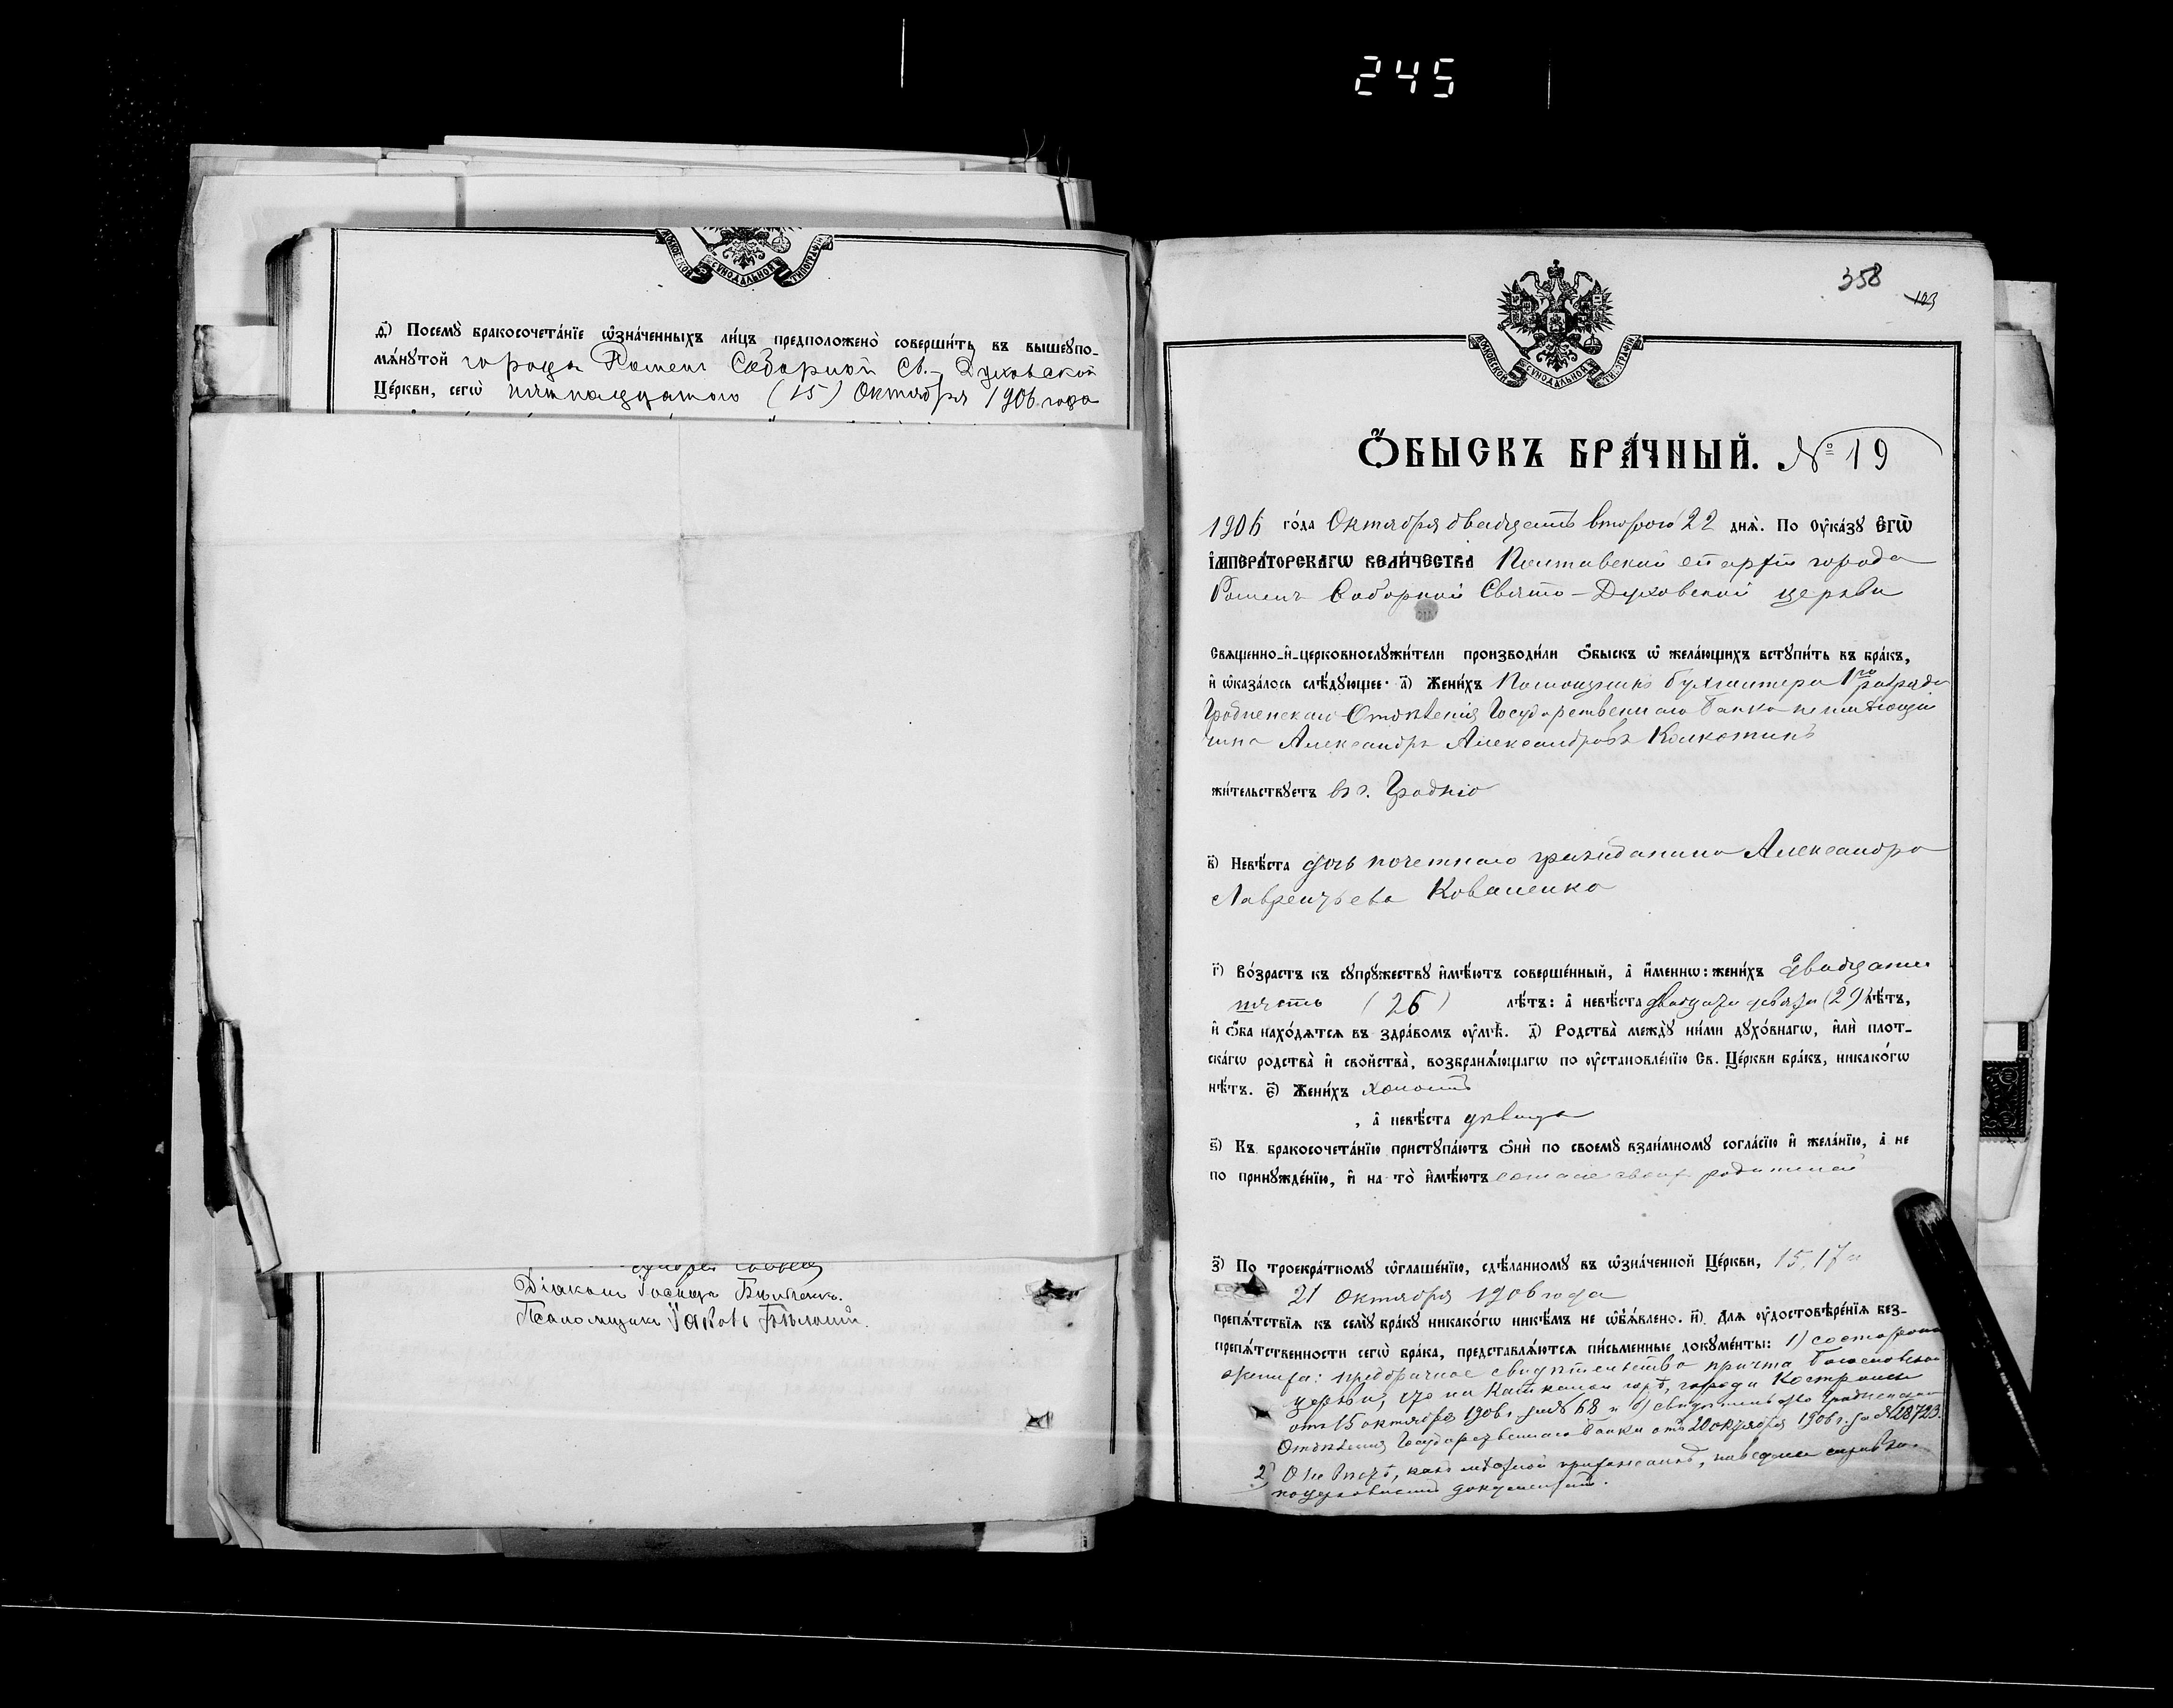 245
МОСКОВСКОЙ СѴНОДАЛЬНОЙ ТИПОГРАФІИ
д҃) Посемꙋ̀ бракосочета́нїе ѡ҆зна́ченныхъ ли́цъ предположено̀ соверши́ть въ вышеꙋпо-
мѧ́нꙋтой города Ромен Соборной Св.-Духовской
Це́ркви, сегѡ̀ пятнадцатого (15) Октября 1906 года
Діаконъ Іосифъ
Псаломщикъ Іаковъ
358
123
МОСКОВСКОЙ СѴНОДАЛЬНОЙ ТИПОГРАФІИ
Ѻ҆БЫСКЪ БРА́ЧНЫЙ. № 19
1906 го́да Октября двадцать второго 22 днѧ̀. По ᲂу҆ка́зꙋ Є҆ГѠ̀
І҆МПЕРА́ТОРСКАГѠ ВЕЛИ́ЧЕСТВА Полтавской епархіи города
Ромен Соборной Свято-Духовской церкви
Свѧщенно-и҆-церковнослꙋжи́тели производи́ли ѻ҆́быскъ ѡ҆ жела́ющихъ встꙋпи́ть въ бра́къ,
и҆ ѡ҆каза́лось слѣ́дꙋющее: а҃) Жени́хъ Помощникъ бухгалтера 1го разряда
Гродненскаго Отдѣленія Государственнаго Банка неимѣющій
чина Александръ Александровъ Колкотинъ
жи́тельствꙋетъ въ г. Гродно
в҃) Невѣ́ста дочь почетнаго гражданина Александра
Лаврентьева Коваленко
г҃) Во́зрастъ къ сꙋпрꙋ́жествꙋ и҆мѣ́ютъ соверше́нный, а҆ и҆́меннѡ: жени́хъ двадцати
(26) лѣ́тъ: а҆ невѣ́ста двадцати девяти (29) лѣ́тъ,
и҆ ѻ҆́ба нахо́дѧтсѧ въ здра́вомъ ᲂу҆мѣ̀. д҃) Родства̀ междꙋ̀ ни́ми дꙋхо́внагѡ, и҆лѝ плот-
ска́гѡ родства̀ и҆ свойства̀, возбранѧ́ющагѡ по ᲂу҆становле́нїю Св. Це́ркви бра́къ, никако́гѡ
нѣ́тъ. є҃) Жени́хъ холостъ
, а҆ невѣ́ста дѣвица
ѕ҃) Къ бракосочета́нїю пристꙋпа́ютъ ѻ҆нѝ по своемꙋ̀ взаи́мномꙋ согла́сїю и҆ жела́нїю, а҆ не
по принꙋжде́нїю, и҆ на то̀ и҆мѣ́ютъ согласіе своихъ родителей
з҃) По троекра́тномꙋ ѡ҆глаше́нїю, сдѣ́ланномꙋ въ ѡ҆зна́ченной Це́ркви, 15, 17 и
21 Октября 1906 года
препѧ́тствїѧ къ семꙋ̀ бра́кꙋ никако́гѡ никѣ́мъ не ѡ҆б̾ѧ́влено. и҃) Длѧ ᲂу҆достовѣре́нїѧ без-
препѧ́тственности сегѡ̀ бра́ка, представлѧ́ютсѧ пи́сьменные докꙋме́нты: 1) со стороны
жениха: предбрачное свидѣтельство причта Богословской
церкви, что на Каткиной горѣ, города Костромы
отъ 15 октября 1906 г. за № 68 и б) свидѣтельство Гродненскаго
Отдѣленія Государственнаго Банка отъ 20 октября 1906 г. за № 28723.
2) О невѣстѣ, какъ мѣстной прихожанкѣ, наведены справки
по церковнымъ документамъ.